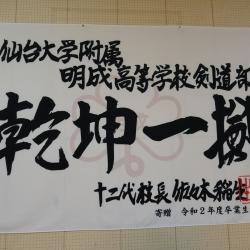 仙台大学附属
明成高等学校剣道部
乾坤一擲
十二代校長 佐々木稲生
寄贈 令和2年度卒業生